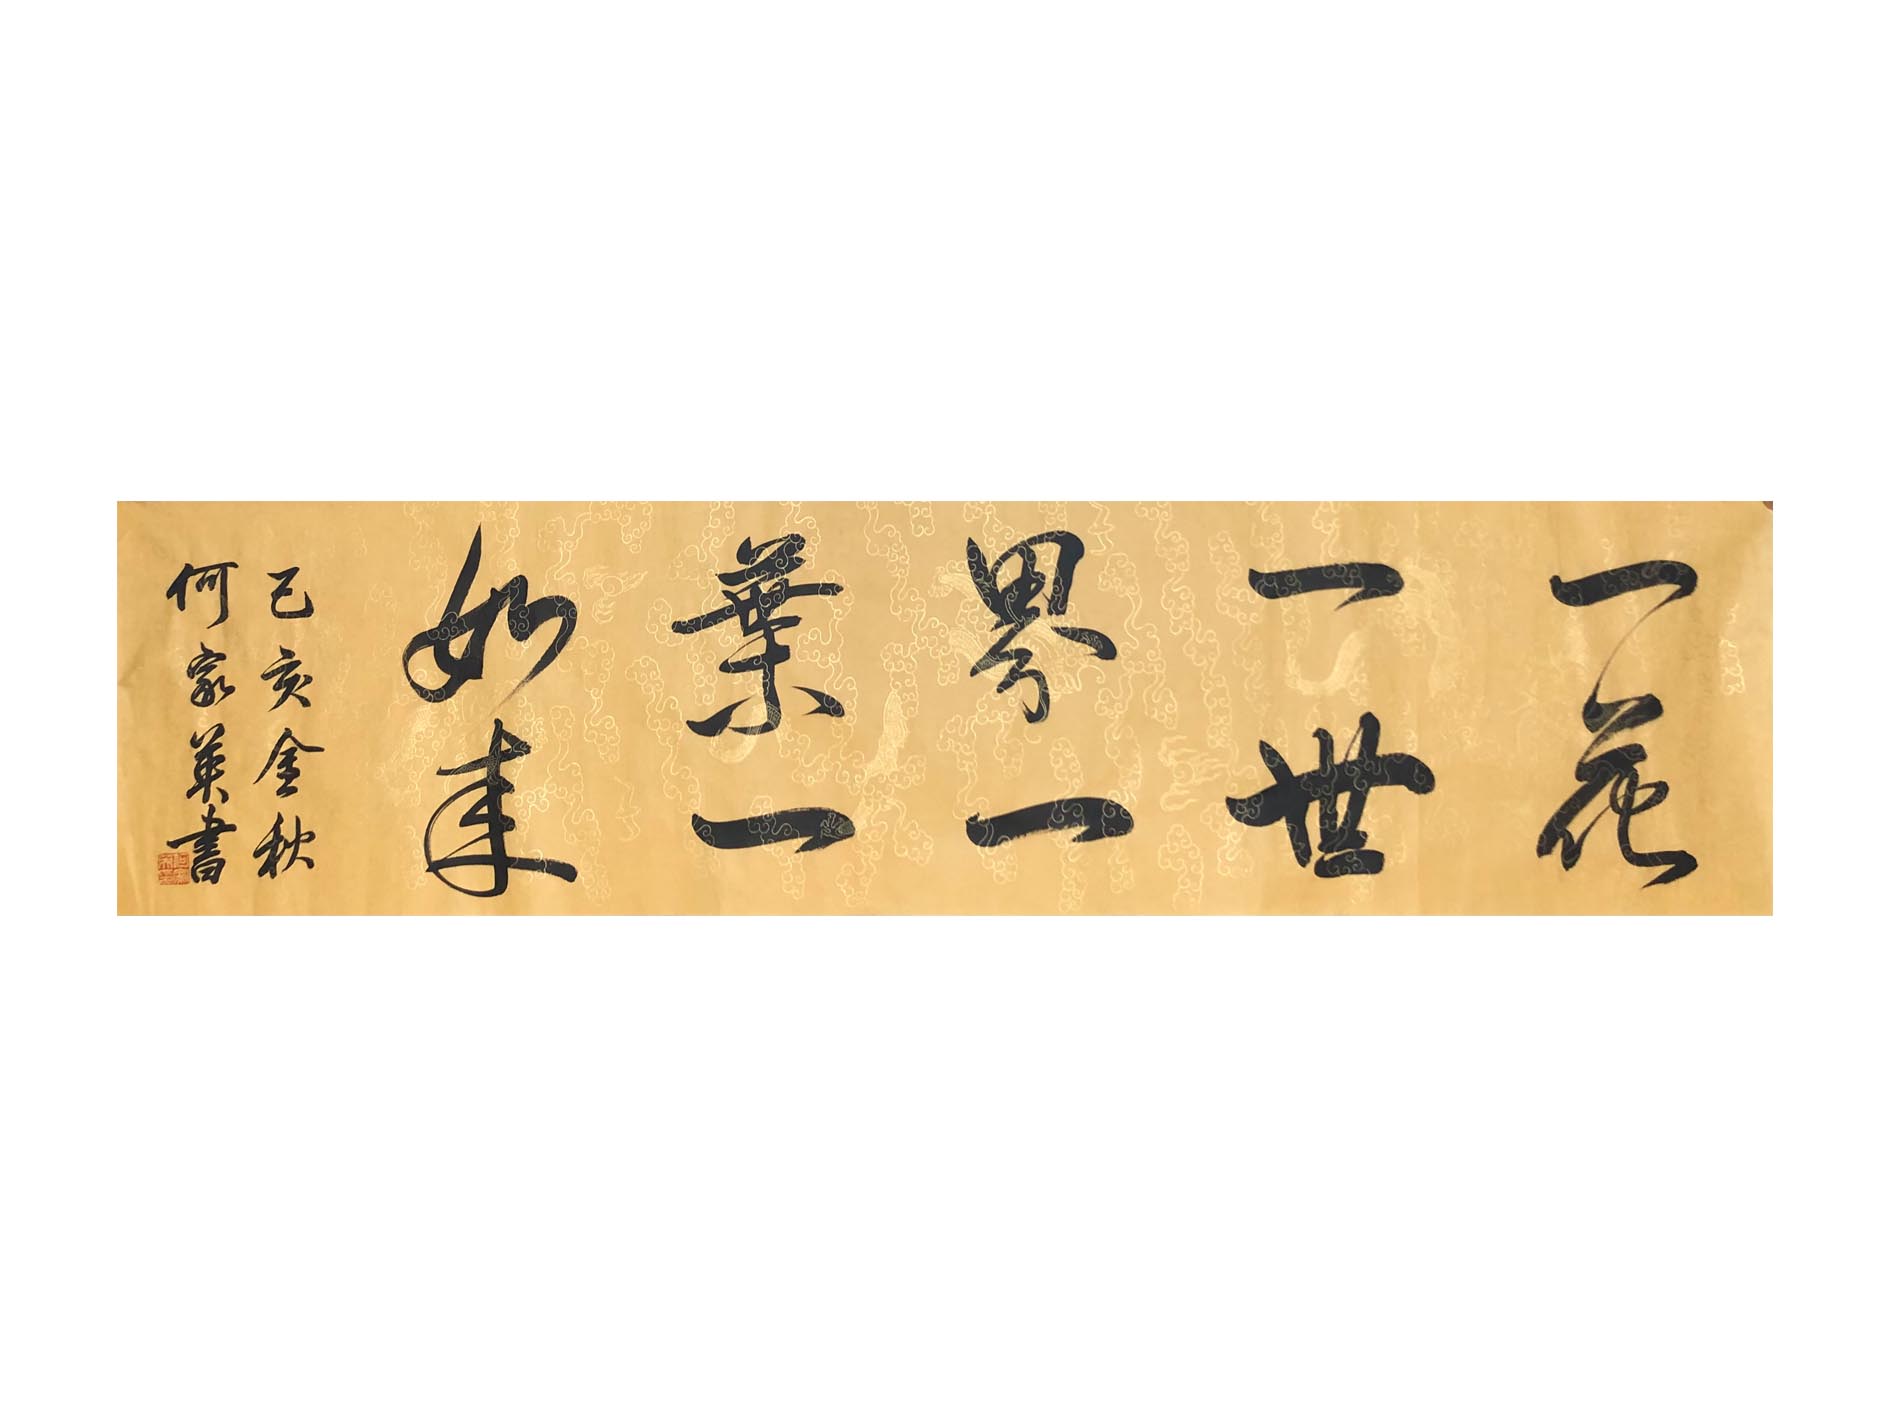 一花
一世
界一
葉一
如来
己亥金秋
何家英書